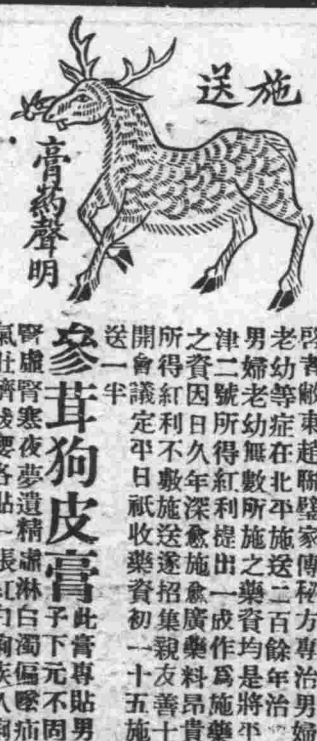 施送
膏藥聲明
啓者敝東趙聯璧蒙傳秘方專治男婦
老幼等症在北平施送二百餘年治
男婦老幼無數所施之藥資均是將平
津二號所得紅利提出一成作爲施藥
之資因日久年深愈施愈廣藥料昂貴
所得紅利不敷施送遂招集親友善士
開會議定平日祇收藥資初一十五施
送一半
參茸狗皮膏
此膏專貼男
子下元不固
腎虛腎寒夜夢遺精虛淋白濁偏墜疝